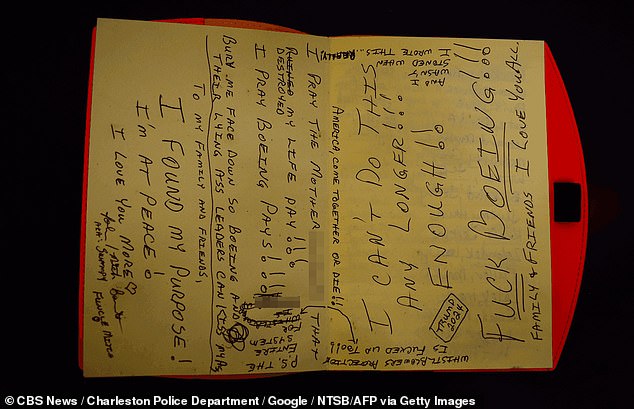 I CAN'T DO THIS
ANY LONGER!!!
ENOUGH!!
FUCK BOEING!!!
FAMILY & FRIENDS I LOVE YOU ALL.
AND
I WASN'T
STONED WHEN
I WROTE THIS...
REALLY!
TRUMP
2024
WHISTLEBLOWERS PROTECTION
IS FUCKED UP TOO!!
AMERICA, COME TOGETHER OR DIE!!!
I PRAY THE MOTHER THAT
DESTROYED MY LIFE PAY!!!
I PRAY BOEING PAYS!!!
P.S. THE
ENTIRE
SYSTEM
FOR
BURY ME FACE DOWN SO BOEING AND
THEIR LYING ASS LEADERS CAN KISS MY ASS
TO MY FAMILY AND FRIENDS,
I FOUND MY PURPOSE!
I'M AT PEACE!
I LOVE YOU MORE♡
© CBS News / Charleston Police Department / Google / NTSB/AFP via Getty Images